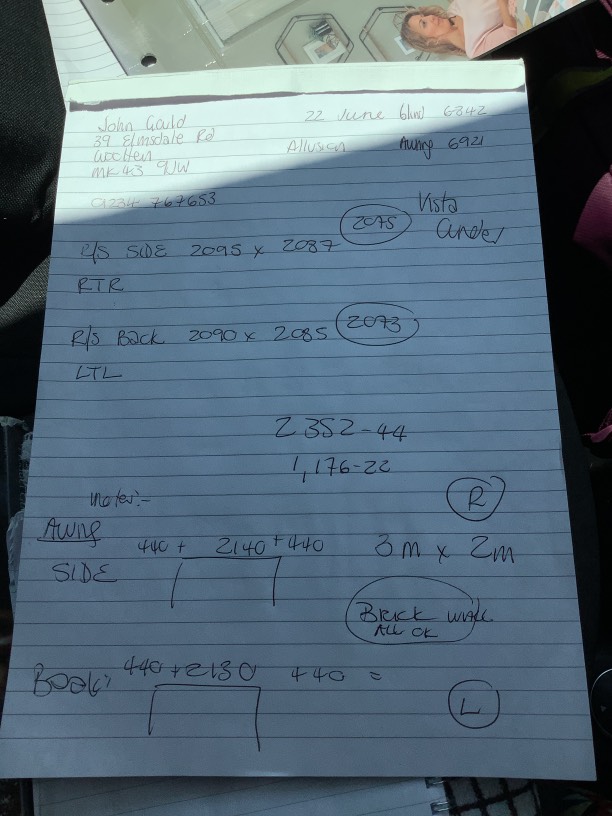 John Gould 22 June blind 6342
39 Elmsdale Rd
Wootten Allusion Awng 6921
MK43 9JW
01234 767653
Vista
2075 Cinder
R/S SIDE 2095 x 2087
RTR
R/S Back 2090 x 2085 2073
LTL
2352-44
1,176-22
Notes:- R
Awng
440 + 2140 + 440 3m x 2m
SIDE
Brick wall
All OK
Back: 440 + 2130 + 440 =
L